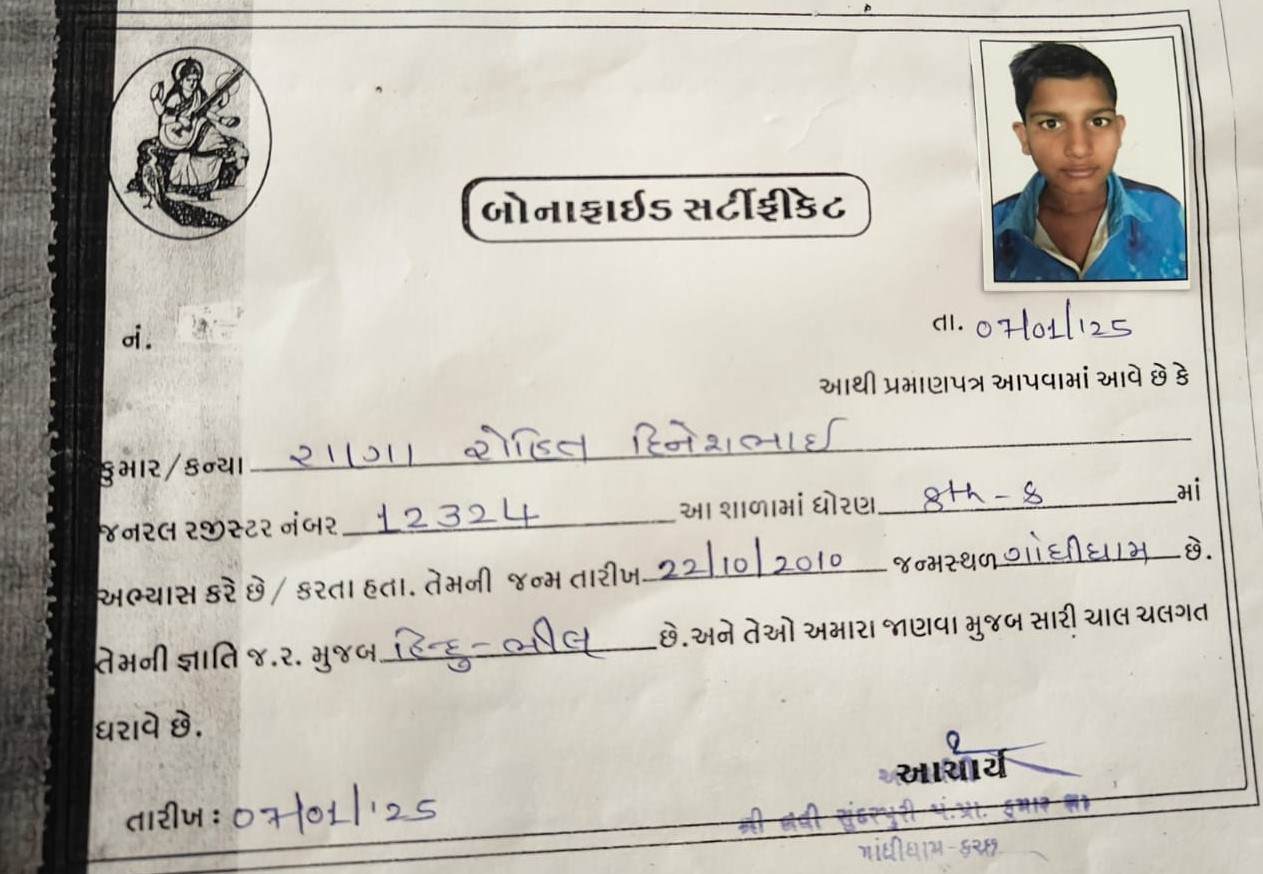 બોનાફાઈડ સર્ટીફીકેટ
નં.
તા. 07/01/'25
આથી પ્રમાણપત્ર આપવામાં આવે છે કે
કુમાર/કન્યા રાગા રોહિત દિનેશભાઈ
જનરલ રજીસ્ટર નંબર 12324 આ શાળામાં ધોરણ 8th - ક માં
અભ્યાસ કરે છે / કરતા હતા. તેમની જન્મ તારીખ 22/10/2010 જન્મસ્થળ ગાંધીધામ છે.
તેમની જ્ઞાતિ જ.ર. મુજબ હિન્દુ-ભીલ છે.અને તેઓ અમારા જાણવા મુજબ સારી ચાલ ચલગત
ધરાવે છે.
આચાર્ય
તારીખ : 07/01/'25
શ્રી નવી સુંદરપુરી પં.પ્રા. કુમાર શા
ગાંધીધામ-કચ્છ